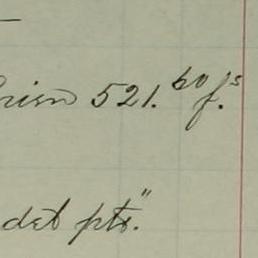 521.⁶⁰ f.ˢ
det pts."